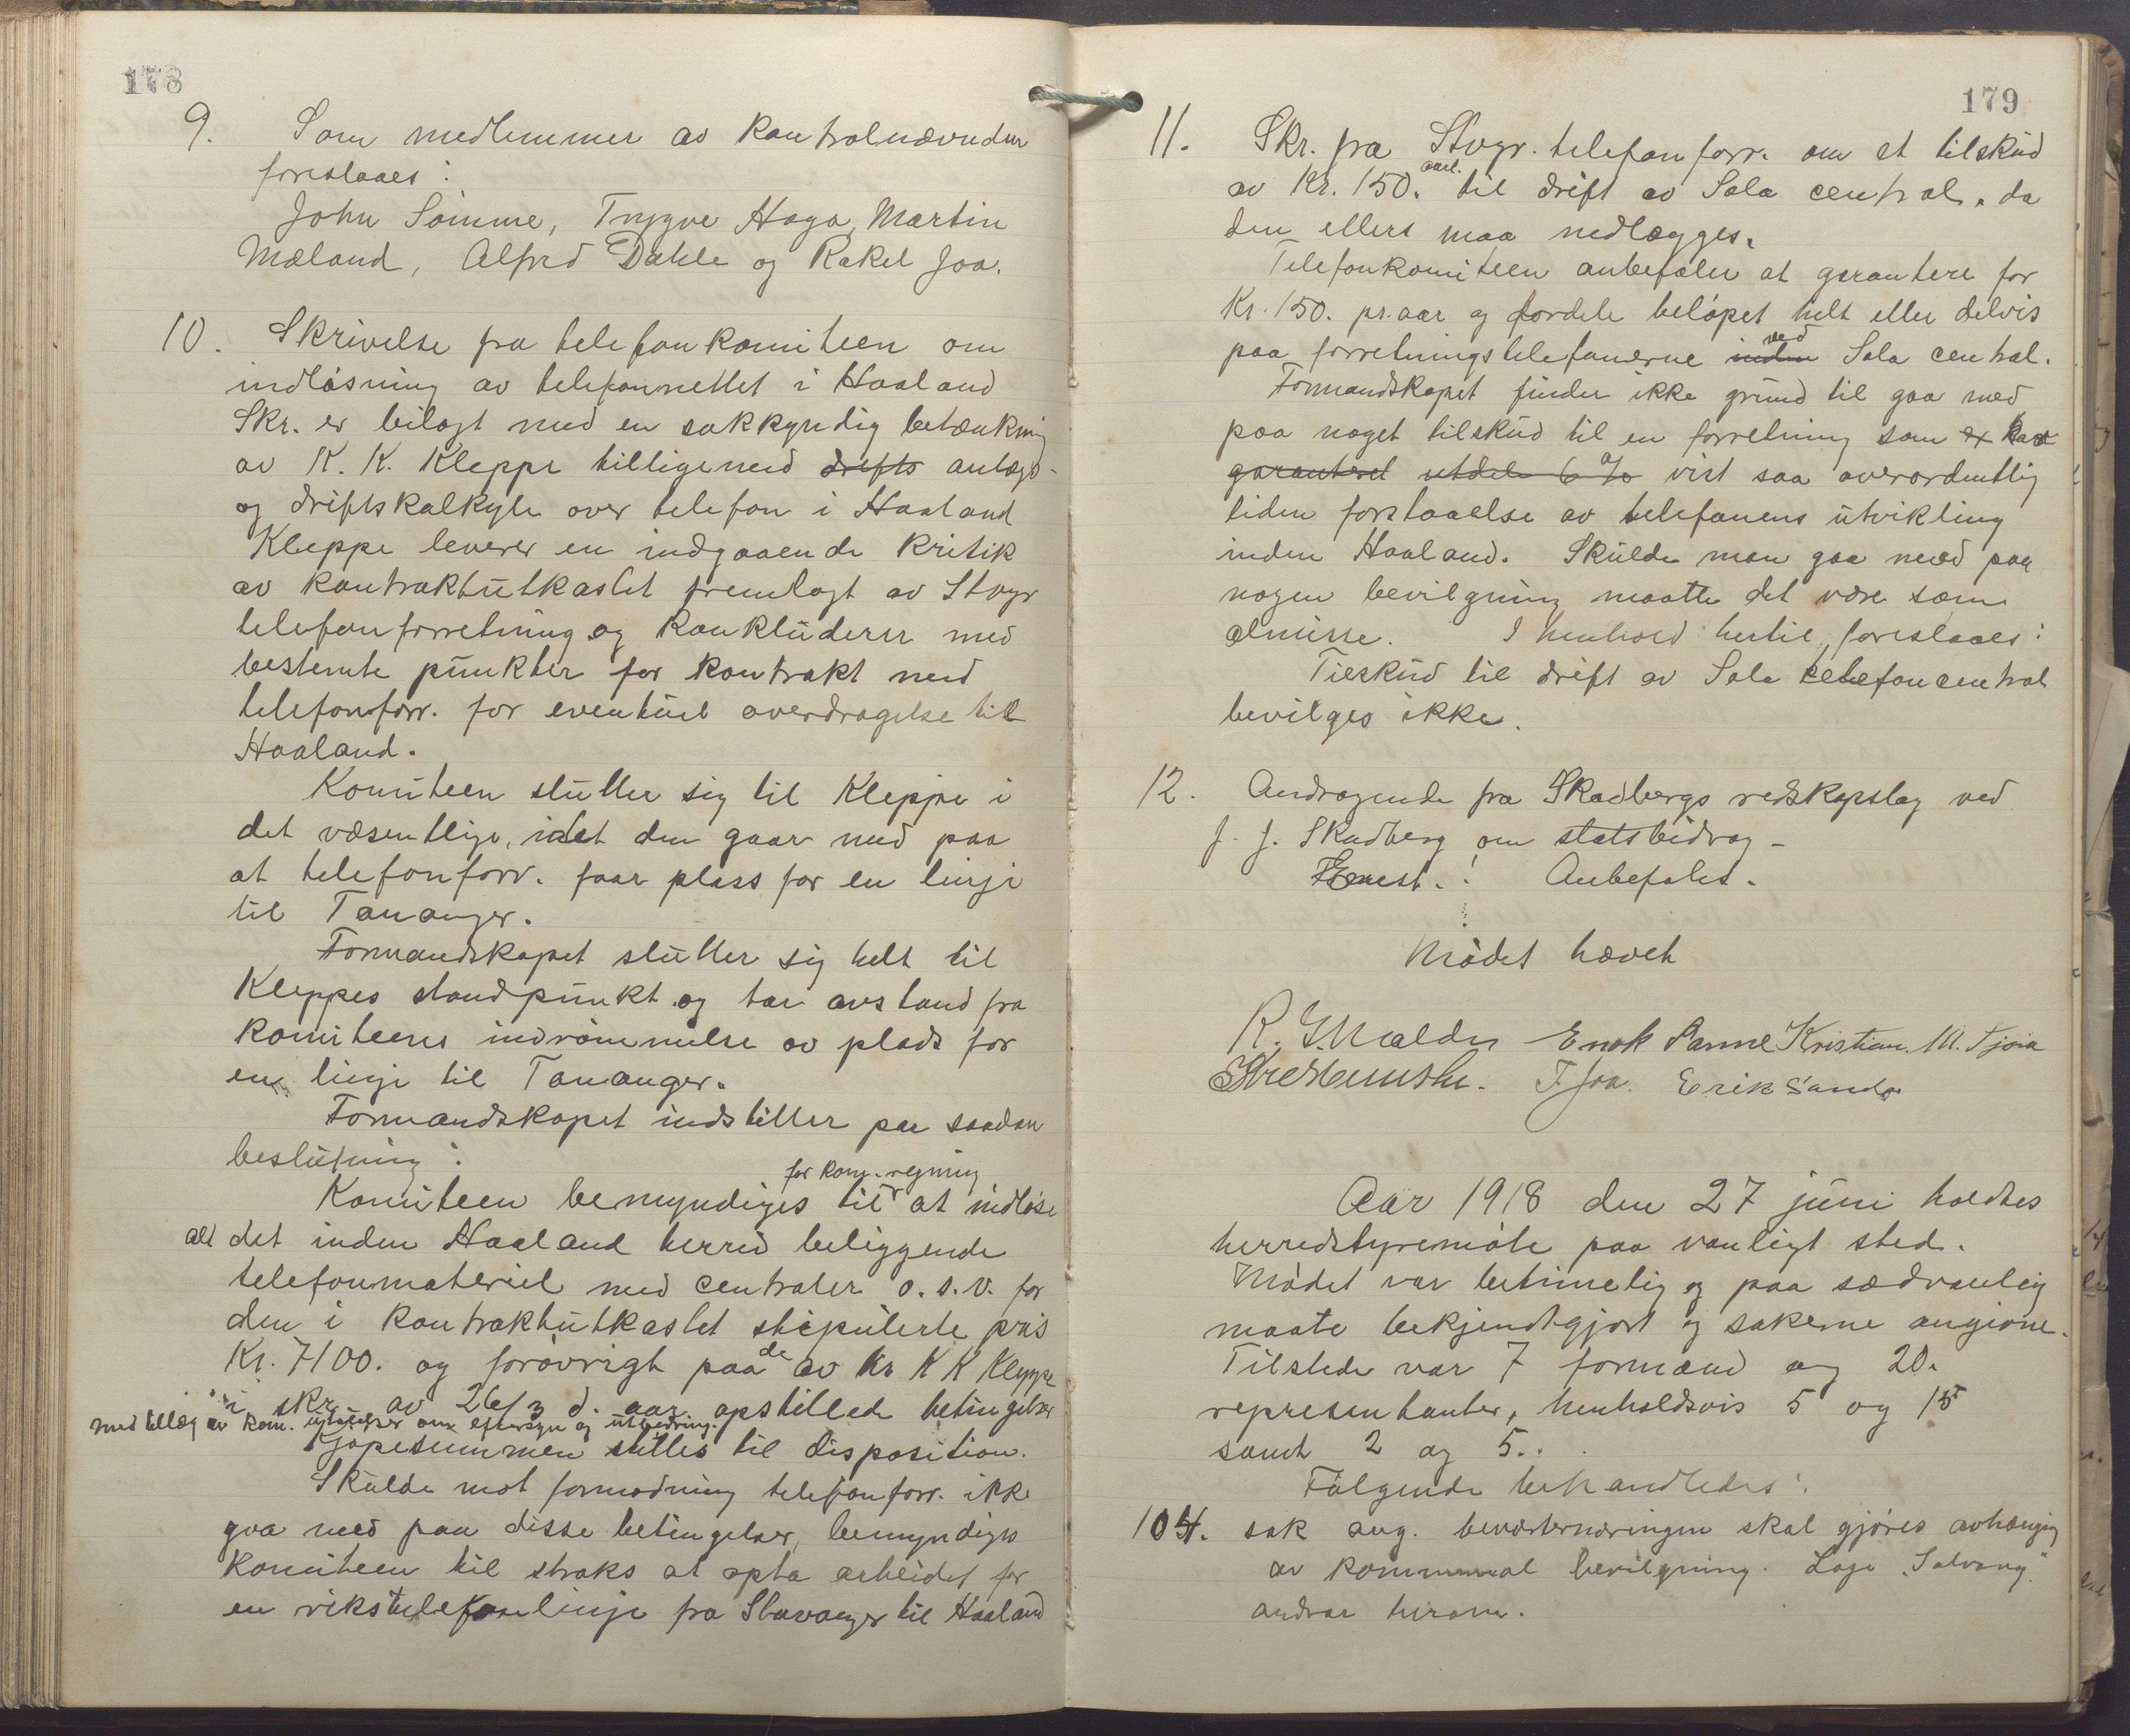 178
9. Som medlemmer av kontrolnævnden
foreslaaes:
John Sømme, Trygve Haga, Martin
Mæland, Alfred Dahle og Rakel Joa.
10. Skrivelse fra telefonkomiteen om
indløsning av telefonnettet i Haaland
Skr. er bilagt med en sakkyndig betænkning
av K. K. Kleppe tilligemed drifts anlægs-
og driftskalkyle over telefon i Haaland
Kleppe leverer en indgaaende kritik
av kontraktutkastet fremlagt av Stvgr
telefonforretning og konkluderer med
bestemte punkter for kontrakt med
telefonforr. for eventuel overdragelse til
Haaland.
Komiteen slutter sig til Kleppe i
det væsentlige, idet den gaar med paa
at telefonforr. faar plass for en linje
til Tananger.
Formandskapet slutter sig helt til
Kleppes standpunkt og tar avstand fra
komiteens indrømmelse av plads for
en linje til Tananger.
Formandskapet indstiller paa saadan
beslutning:
for kom. regning
Komiteen bemyndiges til at indløse
alt det inden Haaland herred beliggende
telefonmateriel med centraler o.s.v. for
den i kontraktutkastet stipulerte pris
Kr. 7100. og forøvrigt paa de av Hr K K Kleppe
i skr. av 26/3 d. aar opstillede betingelser
med tillæg av kom. uttalelser om eftersyn og utbedring.
Kjøpesummen stilles til disposition.
Skulde mot formodning telefonforr. ikke
gaa med paa disse betingelser, bemyndiges
komiteen til straks at opta arbeidet for
en rikstelefonlinje fra Stavanger til Haaland
179
11. Skr. fra Stvgr. telefonforr. om et tilskud
av Kr. 150. aarl. til drift av Sola central, da
den ellers maa nedlægges.
Telefonkomiteen anbefaler at garantere for
Kr. 150. pr. aar og fordele beløpet helt eller delvis
paa forretningstelefonerne inden ved Sola central.
Formandskapet finder ikke grund til gaa med
paa noget tilskud til en forretning som er har
garanteret utdele 6 % vist saa overordentlig
liden forstaaelse av telefonens utvikling
inden Haaland. Skulde man gaa med paa
nogen bevilgning maatte det være som
almisse. I henhold hertil foreslaaes:
Tilskud til drift av Sola telefoncentral
bevilges ikke.
12. Andragende fra Skadbergs redskapslag ved
J. J. Skadberg om statsbidrag -
Enst.: Anbefales.
Mødet hævet
Enok Sanne Kristian M. Tjora
T. Joa. Erik Sande
Aar 1918 den 27 juni holdtes
herredstyremøte paa vanligt sted.
Mødet var betimelig og paa sædvanlig
maate bekjendtgjort og sakerne angivne.
Tilstede var 7 formænd og 20
representanter, henholdsvis 5 og 15
samt 2 og 5.
Følgende behandledes:
104. sak ang. beværternæringen skal gjøres avhængig
av kommunal bevilgning. Loge "Solvang"
andrar herom.